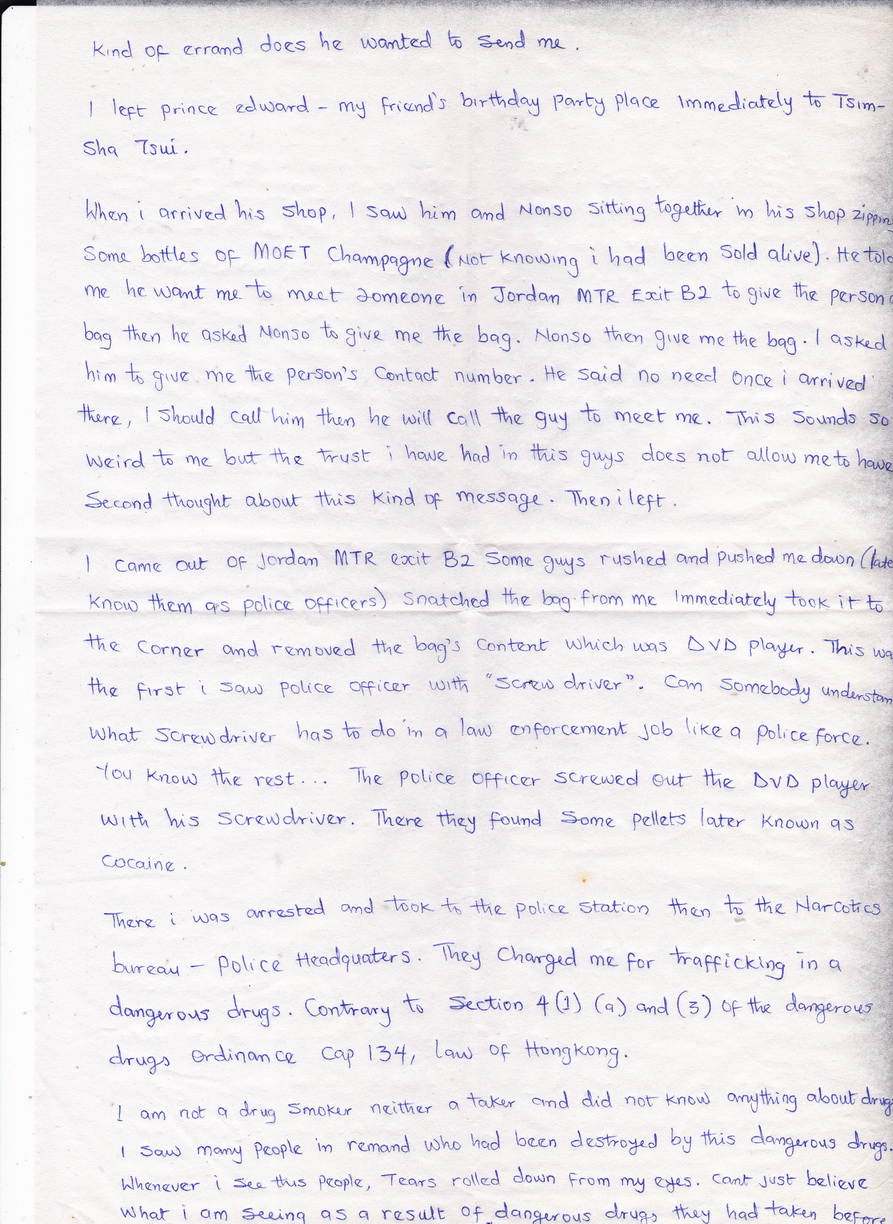 Kind of errand does he wanted to send me.
I left prince edward - my friend's birthday party place immediately to Tsim-
Sha Tsui.
When i arrived his shop, I saw him and Nonso sitting together in his shop zippin
Some bottles of MOET Champagne (Not knowing i had been sold alive). He told
me he want me to meet someone in Jordan MTR Exit B2 to give the person a
bag then he asked Nonso to give me the bag. Nonso then give me the bag. I asked
him to give me the person's contact number. He said no need once i arrived
there, I should call him then he will call the guy to meet me. This sounds so
weird to me but the trust i have had in this guys does not allow me to have
Second thought about this kind of message. Then i left.
I came out of Jordan MTR exit B2 some guys rushed and pushed me down (late
know them as police officers) snatched the bag from me immediately took it to
the corner and removed the bag's content which was DVD player. This wa
the first i saw police officer with "screw driver". Can somebody understan
what screwdriver has to do in a law enforcement job like a police force.
You know the rest... The police officer screwed out the DVD player
with his screwdriver. There they found some pellets later known as
cocaine.
There i was arrested and took to the police station then to the Narcotics
bureau - Police Headquaters. They Charged me for trafficking in a
dangerous drugs. Contrary to Section 4(1) (a) and (3) of the dangerous
drugs ordinance cap 134, law of Hongkong.
I am not a drug smoker neither a taker and did not know anything about drug
I saw many people in remand who had been destroyed by this dangerous drugs.
Whenever i see this people, Tears rolled down from my eyes. Cant just believe
what i am seeing as a result of dangerous drugs they had taken before